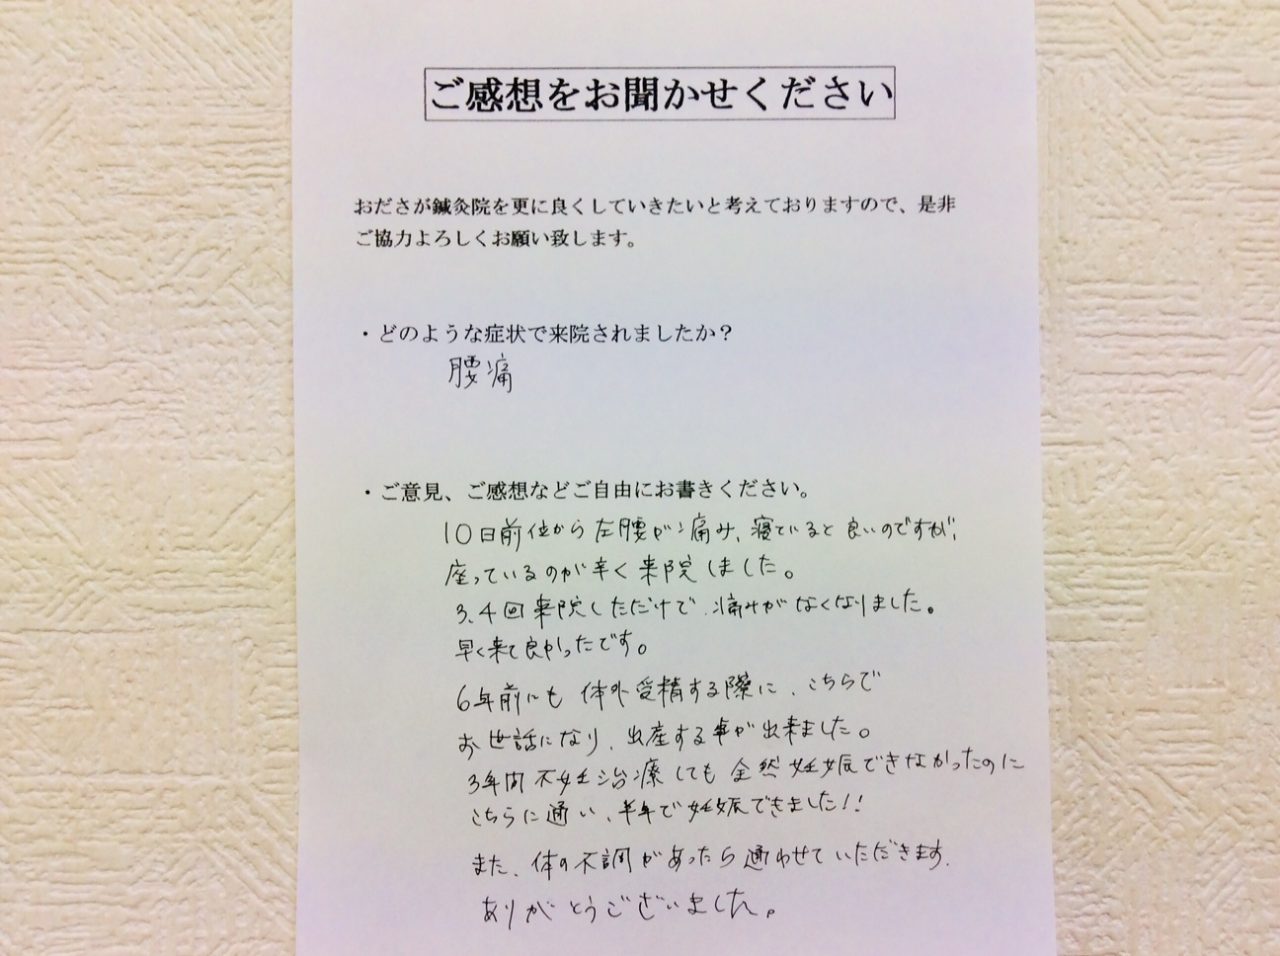 ご感想をお聞かせください
おださが鍼灸院を更に良くしていきたいと考えておりますので、是非
ご協力よろしくお願い致します。
・どのような症状で来院されましたか？
腰痛
・ご意見、ご感想などご自由にお書きください。
10日前位から左腰が痛み、寝ていると良いのですが、
座っているのが辛く来院しました。
3、4回来院しただけで、痛みがなくなりました。
早く来て良かったです。
6年前にも体外受精する際に、こちらで
お世話になり、出産する事が出来ました。
3年間不妊治療しても全然妊娠できなかったのに
こちらに通い、半年で妊娠できました!!
また、体の不調があったら通わせていただきます。
ありがとうございました。